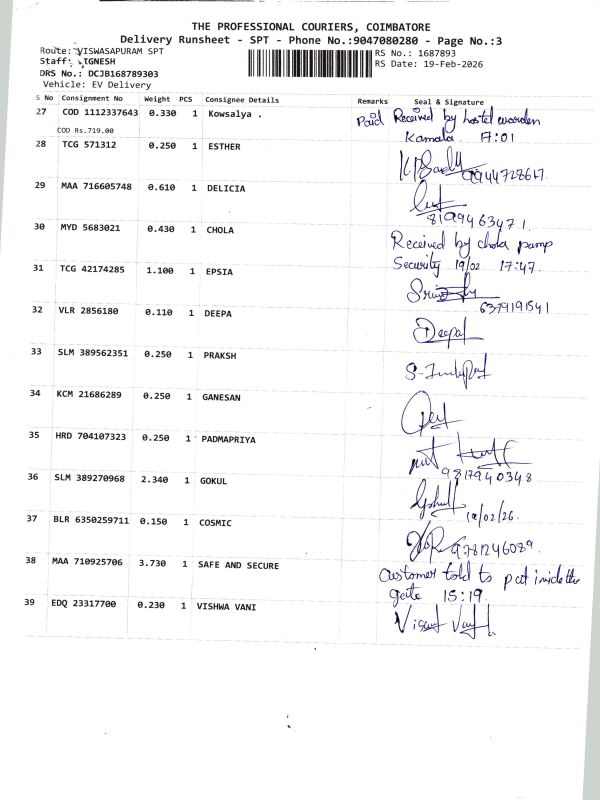 THE PROFESSIONAL COURIERS, COIMBATORE
Delivery Runsheet - SPT - Phone No.:9047080280 - Page No.:3
Route: VISWASAPURAM SPT
RS No.: 1687893
Staff: VIGNESH
RS Date: 19-Feb-2026
DRS No.: DCJB168789303
Vehicle: EV Delivery
S No Consignment No Weight PCS Consignee Details Remarks Seal & Signature
27 COD 1112337643 0.330 1 Kowsalya . Paid Received by hostel wooden
COD Rs.719.00 Kamala 17:01
28 TCG 571312 0.250 1 ESTHER
29 MAA 716605748 0.610 1 DELICIA
8199463471
30 MYD 5683021 0.430 1 CHOLA Received by chola pump
Security 19/02 17:47.
31 TCG 42174285 1.100 1 EPSIA
6379191541
32 VLR 2856180 0.110 1 DEEPA Deepa
33 SLM 389562351 0.250 1 PRAKSH
34 KCM 21686289 0.250 1 GANESAN
35 HRD 704107323 0.250 1 PADMAPRIYA
9817940348
36 SLM 389270968 2.340 1 GOKUL Gokul
19/02/26.
37 BLR 6350259711 0.150 1 COSMIC
9781246089.
38 MAA 710925706 3.730 1 SAFE AND SECURE Customer told to put inside the
gate 15:19.
39 EDQ 23317700 0.230 1 VISHWA VANI